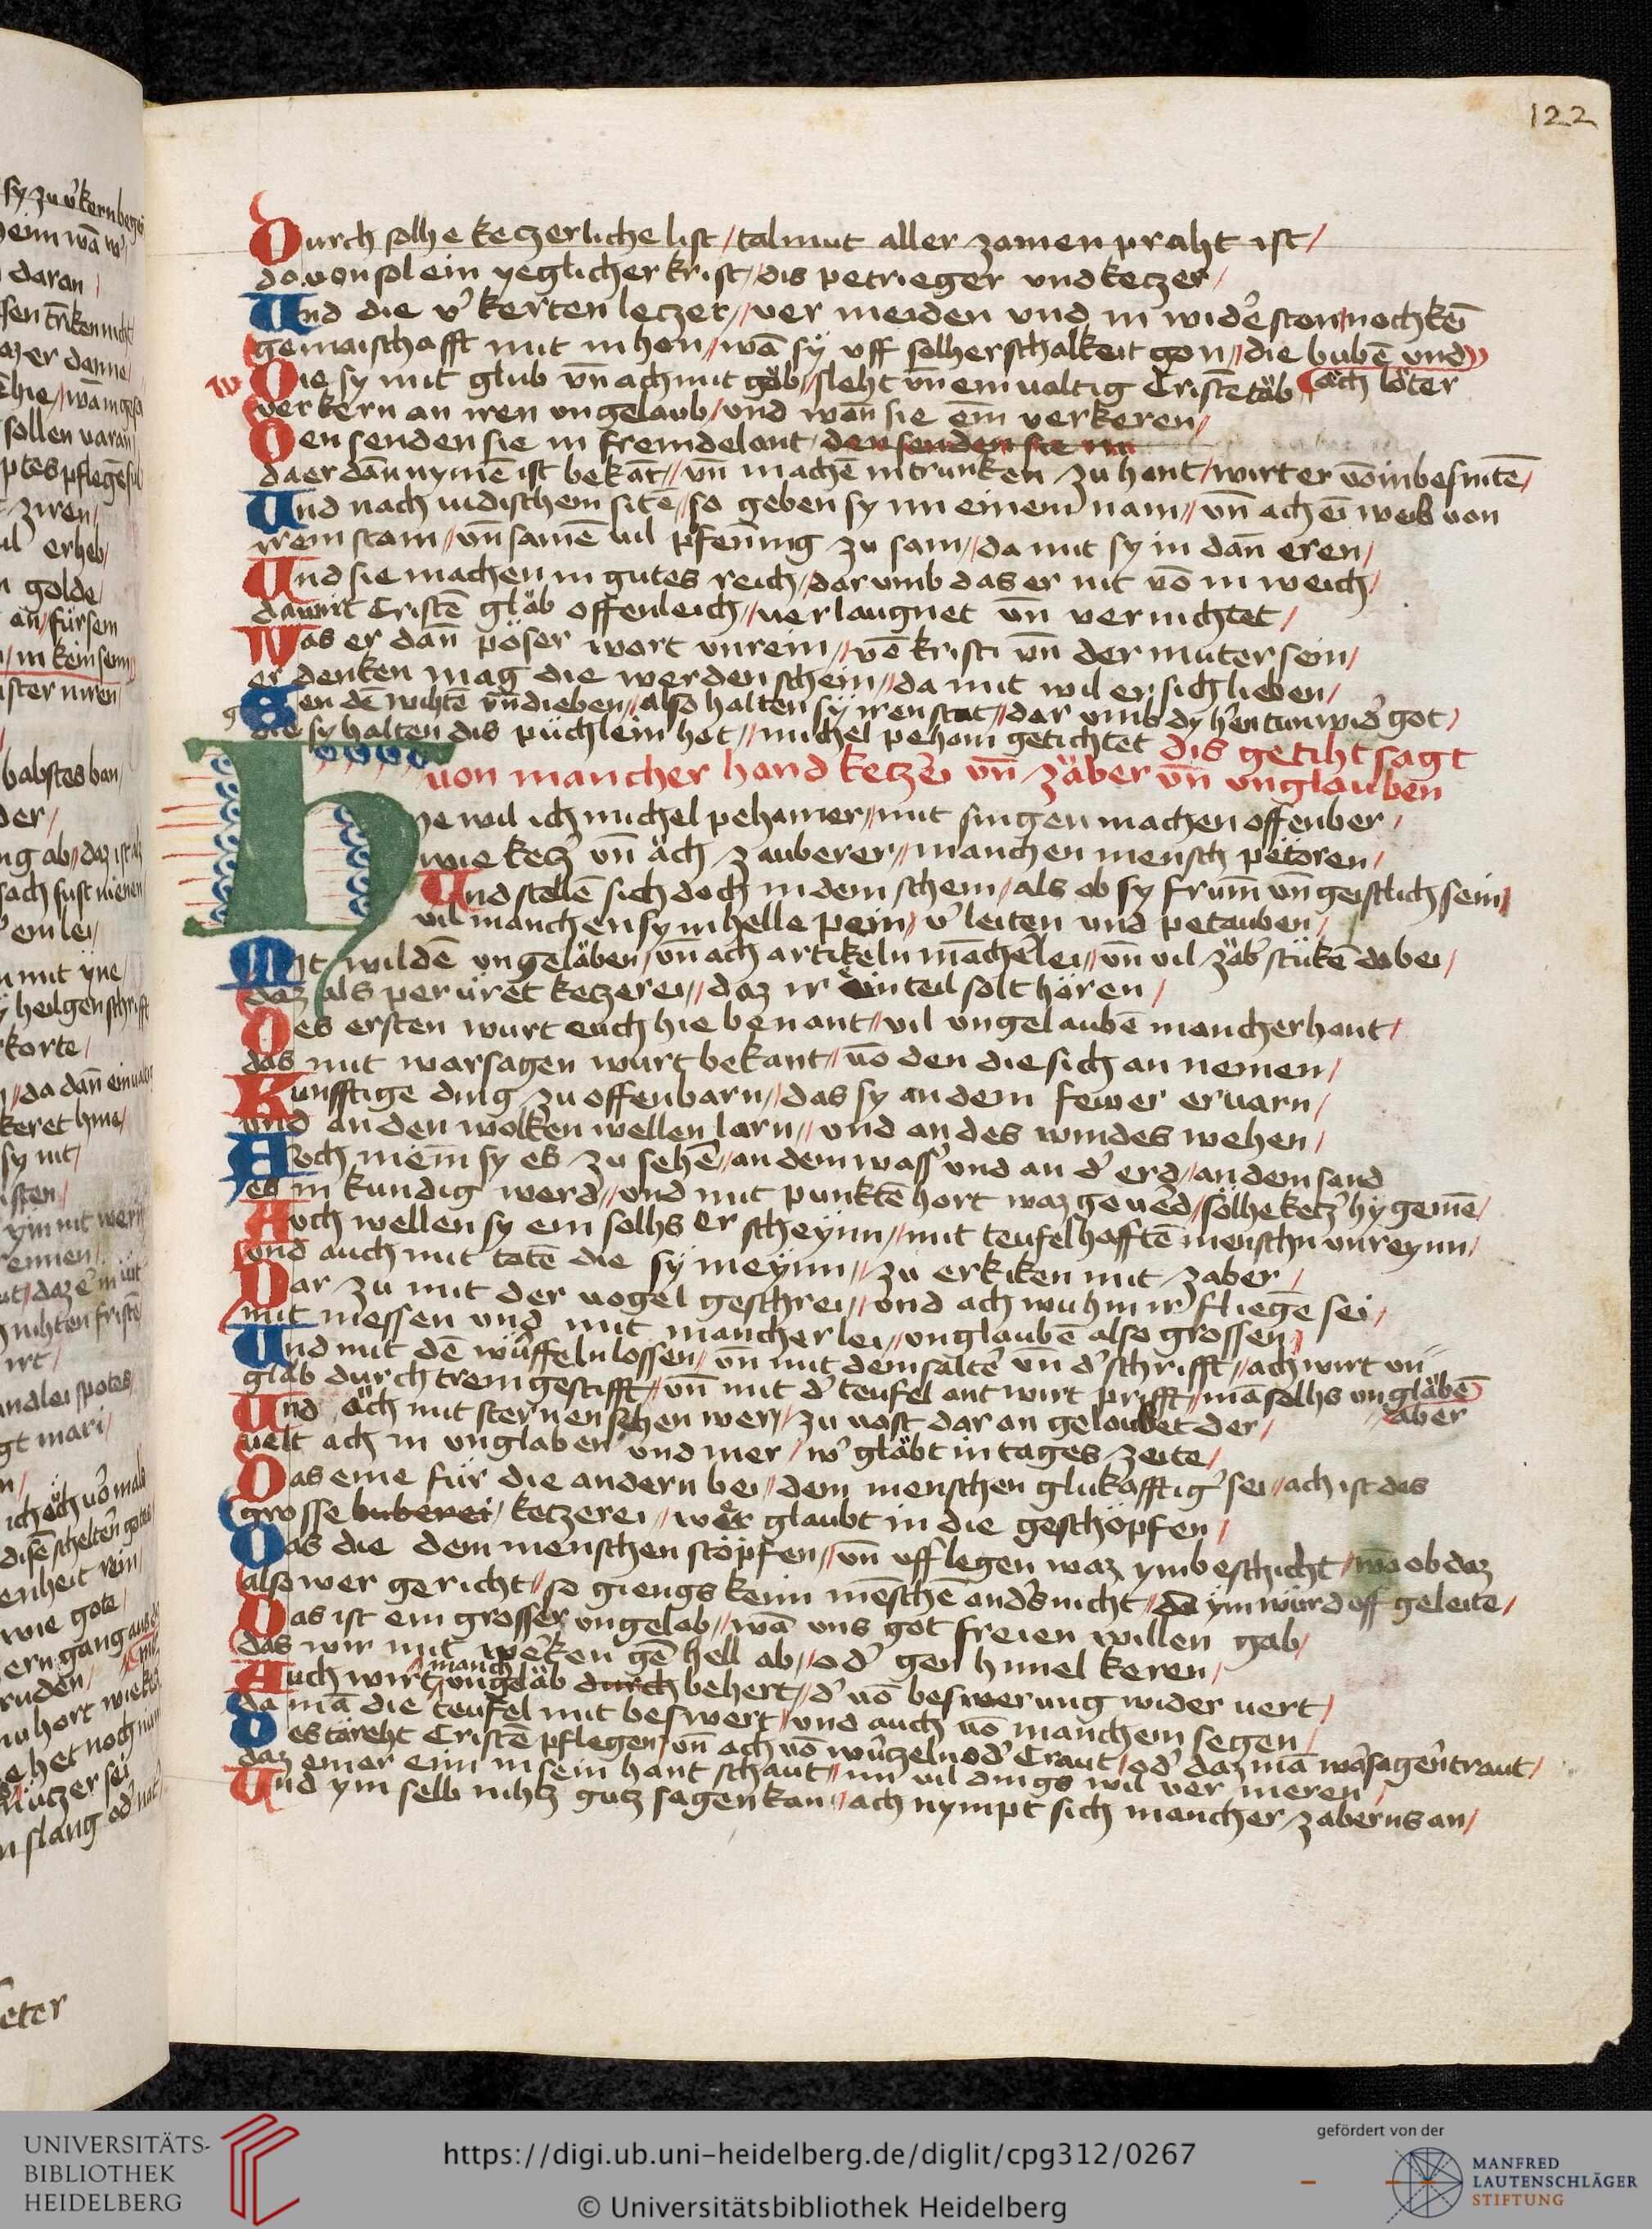 122
Durch solhe ketzerliche list / talmut aller zamen praht ist /
do von sol ein yeglicher krist / dis petrieger und ketzer /
Und die v'kerten letzer // ver meiden und in wid'ston noch kē
gemaischafft mit in hon // wā sy uff solher schalkeit gon // die bubē und
Die sy mit glub vn̄ ach mit gäb // sleht vn̄ einualtig Cristē täb äch löter
verkern an iren ungelaub / und wan̄ sie ein verkeren /
Den senden sie in fremde lant den senden sie in
da er dan̄ nymē ist bekāt // vn̄ machē in trunken zu hant / wirt er vō in besnitē /
Und nach iudischem sitē // so geben sy im einem nam // vn̄ ach eī weib von
irem stam // vn̄ samē uil pfen̄ing zu sam // da mit sy in dan̄ eren /
Und sie machen in gutes reich / dar umb das er nit vō in weich /
da mit Cristē gläb offenleich // verlaugnet vn̄ vernichtet /
Was er dan̄ pöser wort unrein // vō kristi vn̄ der muter sein /
er denken mag die werden schein // da mit wil er sich lieben /
Gen dē wihtē vn̄ dieben / also halten sy iren stat // dar umb dy h'en tun wid' got /
die sy halten dis püchlein hot // michel peham getichtet dis getiht sagt
von mancher hand ketzei vn̄ zäber vn̄ unglauben
Hye wil ich michel pehamer // mit singen machen offenber /
wie ketz' vn̄ äch zauberer // manchen mensch petören /
Und stellē sich doch in dem schein / als ob sy frum̄ vn̄ geistlich sein /
uil manchen sy in helle pein / v'leiten und petauben /
Mit wildē ungeläben / vn̄ ach artikeln mācherlei // vn̄ uil zäb' stükē da bei /
daz als perüret ketzerei // daz ir ein teil solt hören /
Des ersten wurt euch hie benant // uil ungelaubē mancherhant /
das mit warsagen wurt bekant // vō den die sich an nemen /
Kunfftige ding zu offenbarn // das sy an dem fewer ervarn /
und an den wolken wellen larn // und an des windes wehen /
Auch mein̄ sy es zu sehē // an dem wass' und an d' erd // an dem sand
es in kundig werd // und mit punktē hort waz geuerd / sölhe ketz' hy gemē /
Auch wellen sy ein solhs erscheynn // mit teufelhafftē menschn unreynn /
und auch mit totē die sy meynn // zu erkiken mit zaber /
Dar zu mit der uogel geschrei // und ach wuhin ir fliegē sei /
mit messen und mit mancherlei // unglaubē also grossen /
Und mit dē würffeln lossen / vn̄ mit dem saltē' vn̄ d' schrifft // ach wirt un
gläb durch trem gestifft // vn̄ mit d' teufel antwirt prifft / mā solhs ungläbē
Und äch mit sternen sehen wer // zu vast dar an gelaubet der / aber
uelt ach in unglaben und mer / w' gläbt in tages zeite /
Das eine für die andern bei // dem menschen glukafftig' sei // ach ist das
grosse buberei / ketzerei // wer glaubt in die geschöpfen /
Das die dem menschen stöpfen // vn̄ uff legen waz ym beschicht / wā ob daz
also wer gericht // so giengs keim mēschē and's nicht / da ym würd uff geleite /
Das ist ein grosser ungelab // wā uns got freien willen gab /
das wir mit werken gē hell ab // od' gen himel keren /
manch
Auch wirt ungeläb durch behert // d' vō beswerung wider uert /
da mā die teufel mit beswert / und auch vō manchem segen /
Des täreht Cristē pflegen / vn̄ ach vō würtzeln od' Craut / od' daz mā warsagern traut /
daz einer eim in sein hant schaut // im uil dings wil ver meren /
Und ym selb nihtz gutz sagen kan // ach nympt sich mancher zaberns an /
UNIVERSITÄTS-
BIBLIOTHEK
HEIDELBERG
https://digi.ub.uni-heidelberg.de/diglit/cpg312/0267
© Universitätsbibliothek Heidelberg
gefördert von der
MANFRED
LAUTENSCHLÄGER
STIFTUNG